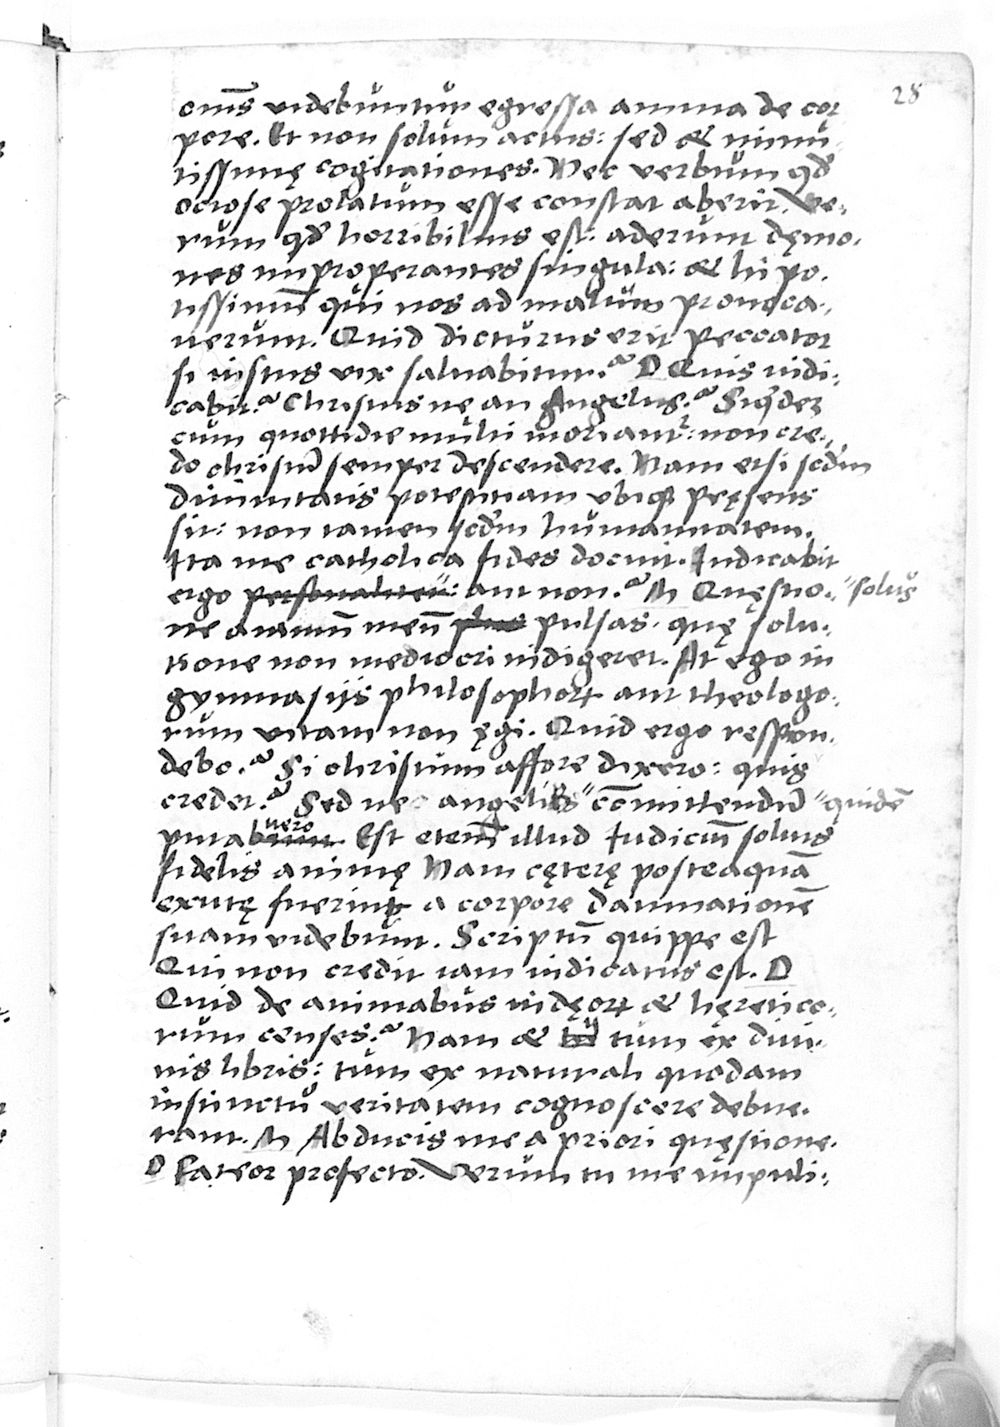 28
om̅s videbuntur egressa anima de cor
pore. Et non solum actus: sed & minu
tissimę cogitationes. Nec verbum qđ
ociose prolatum esse constat aberit. Ve-
rum qđ horribilius est: aderunt dęmo-
nes improperantes singula: & hi po-
tissimu̅ qui nos ad malum prouoca-
uerunt. Quid dicturus erit peccator
si iustus vix saluabitur? D Quis iudi-
cabit? Christus ne an Angelus? Siqdeꝫ
cum quottidie multi moriant᷑: non cre-
do christu̅ semper descendere. Nam etsi scd̅m
diuinitatis potentiam vbiqꝫ pręsens
sit: non tamen scd̅m humanitatem.
Ita me catholica fides docuit. Iudicabit
ergo personaliter: aut non? M Quęstio- "solus
ne animu̅ meu̅ plus pulsas. quę solu-
tione non mediocri indigeret. At ego in
gymnasijs philosophoꝝ aut theologo-
rum vitam non ęgi. Quid ergo respon-
debo? Si christum affore dixero: quis
credet? Sed nec angelis" co̅mittendu̅ "quide̅
putab uero Est eteni̅ illud Iudiciu̅ solius
fidelis animę Nam cęterę posteaqua̅
exutę fuerint a corpore damnatione̅
suam videbunt. Scriptu̅ quippe est
Qui non credit iam iudicatus est. D
Quid de animabus iudęoꝝ & hęretico-
rum censes? Nam & tum ex diui-
nis libris: tum ex naturali quodam
instinctu veritatem cognoscere debue-
rant. M Abducis me a priori quęstione.
D Fateor profecto. Verum tu me impuli-